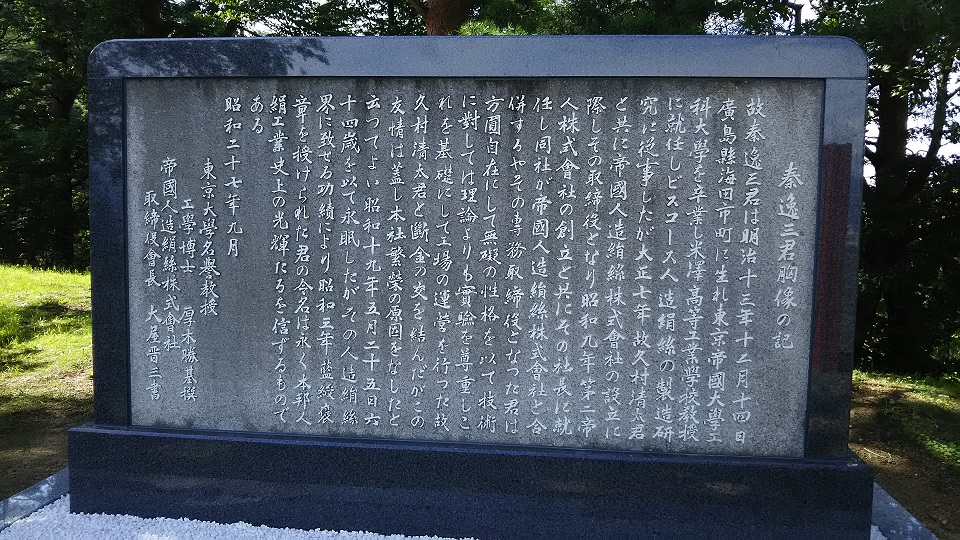 秦逸三君胸像の記
故秦逸三君は明治十三年十二月十四日
廣島縣海田市町に生れ東京帝國大學工
科大學を卒業し米澤高等工業學校教授
に就任しビスコース人造絹絲の製造研
究に從事したが大正七年故久村清太君
と共に帝國人造絹絲株式會社の設立に
際しその取締役となり昭和九年第二帝
人株式會社の創立と共にその社長に就
任し同社が帝國人造絹絲株式會社と合
併するやその專務取締役となった君は
方圓自在にして無礙の性格を以て技術
に對しては理論よりも實驗を尊重しこ
れを基礎にして工場の運營を行つた故
久村清太君と斷金の交を結んだがこの
友情は蓋し本社繁榮の原因をなしたと
云つてよい昭和十九年五月二十五日六
十四歳を以て永眠したがその人造絹絲
界に致せる功績により昭和三年藍綬褒
章を授けられた君の令名は永く本邦人
絹工業史上の光輝たるを信ずるもので
ある
昭和二十七年九月
東京大學名譽教授
工學博士 厚木勝基撰
帝國人造絹絲株式會社
取締役會長 大屋晋三書